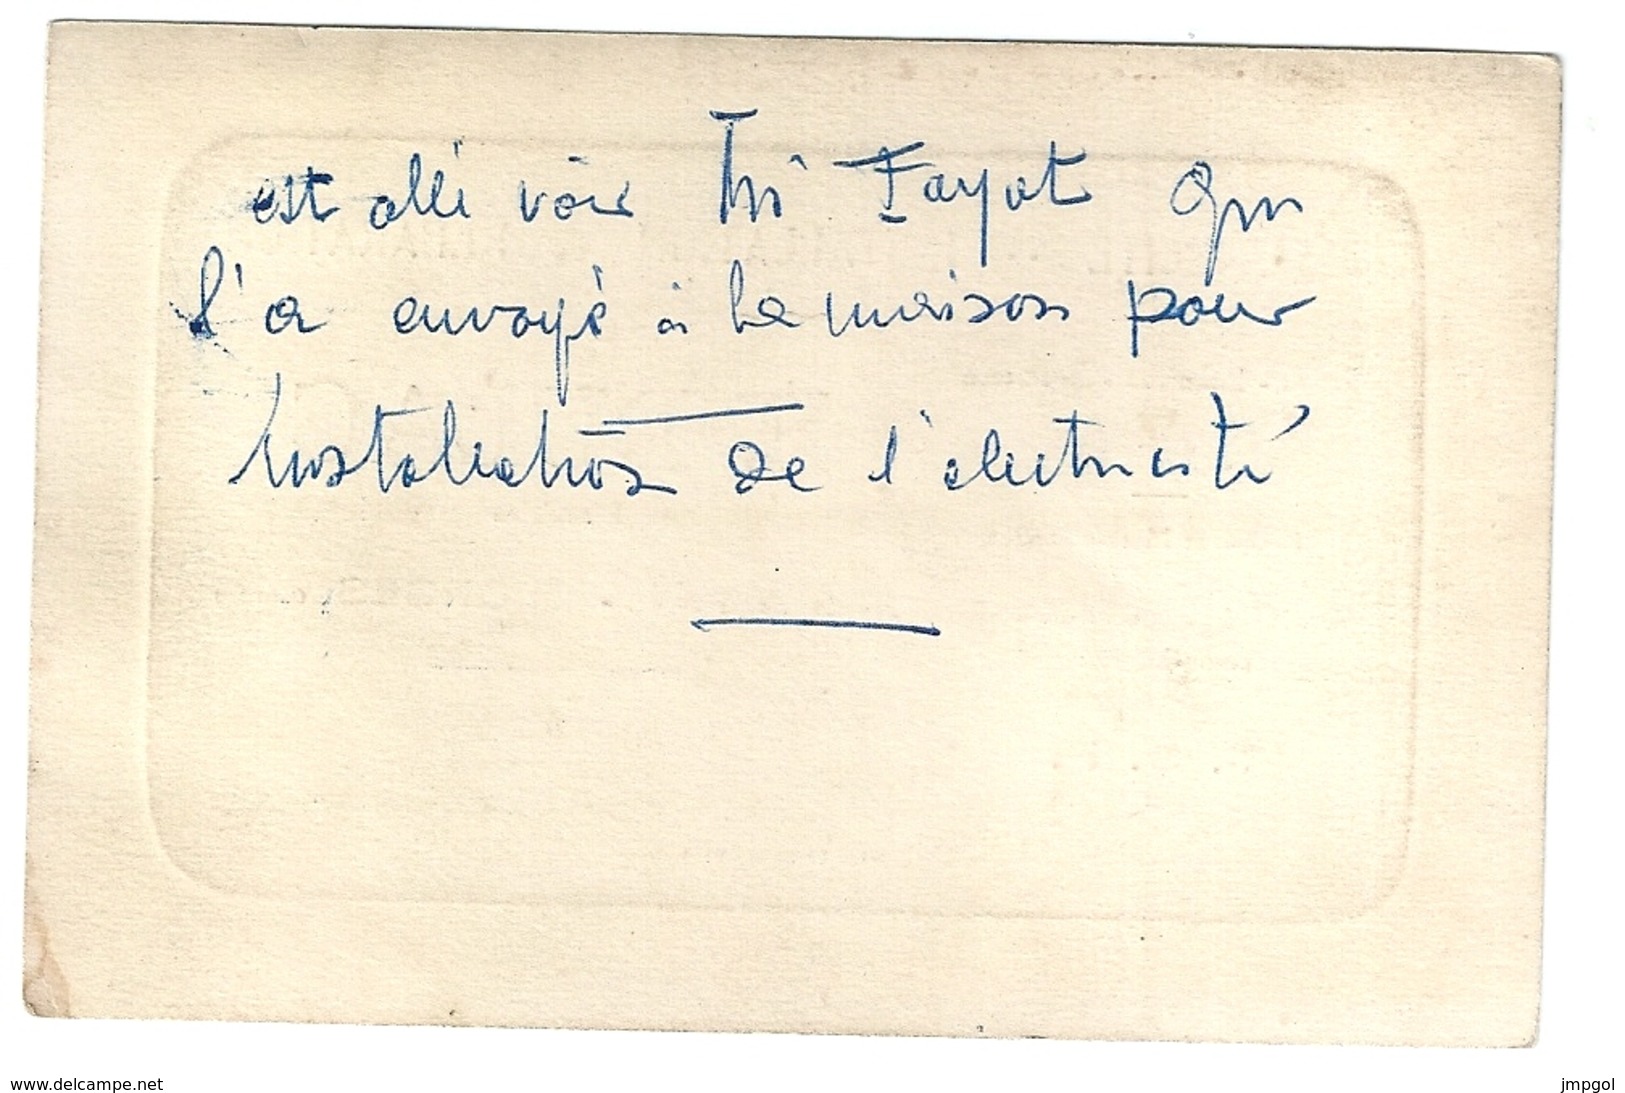 est allé voir Mr Fayot qui
l'a envoyé à la maison pour
Installation de l'électricité
www.delcampe.net
jmpgol